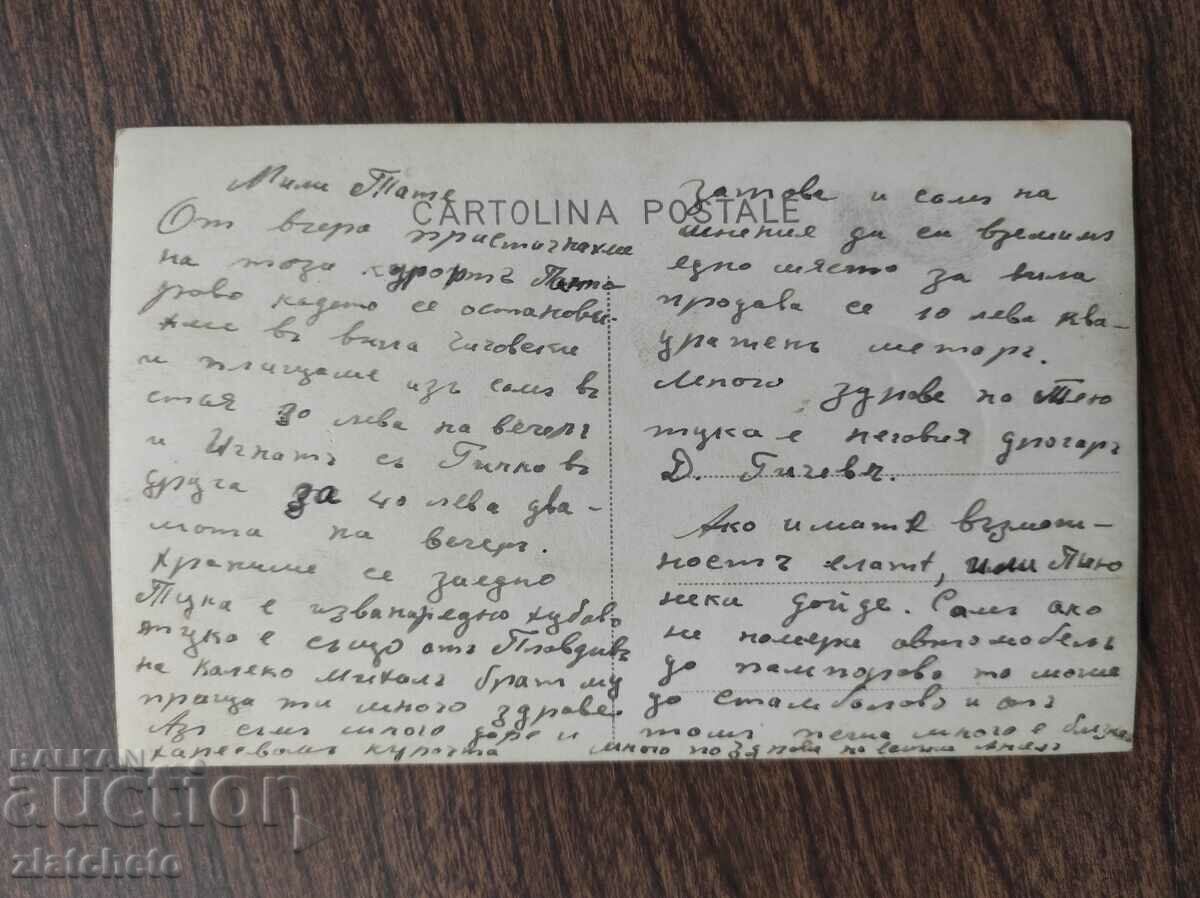 Мили Тате
CARTOLINA POSTALE
От вчера пристигнахме
на този курортъ Пампо
рово кадето се останови-
хме въ вила Чичовски
и плащаме изъ самъ въ
стая 30 лева на вечерь
и Игнатъ съ Гичко въ
друга за 40 лева два-
мата на вечерь.
Храниме се заедно
Тука е извънредно хубаво
тука е също отъ Пловдивъ
на калеко Михалъ братъ му
праща ти много здраве.
Азъ съмъ много добре и
харесвамъ курорта
Затова и самъ на
мнение да си вземимъ
едно място за вила
продава се 10 лева ква-
дратенъ метаръ.
Много здраве на
тука е неговия другаръ
Д. Гичевъ.
Ако имате възмож-
ностъ елате, или Пею
нека дойде. Самъ ако
не намери автомобелъ
до пампорово то може
до Стамболовъ и отъ
тамъ пеша много е близко
много поздрави на всички Ангелъ
BALKAN
auction
zlatcheto